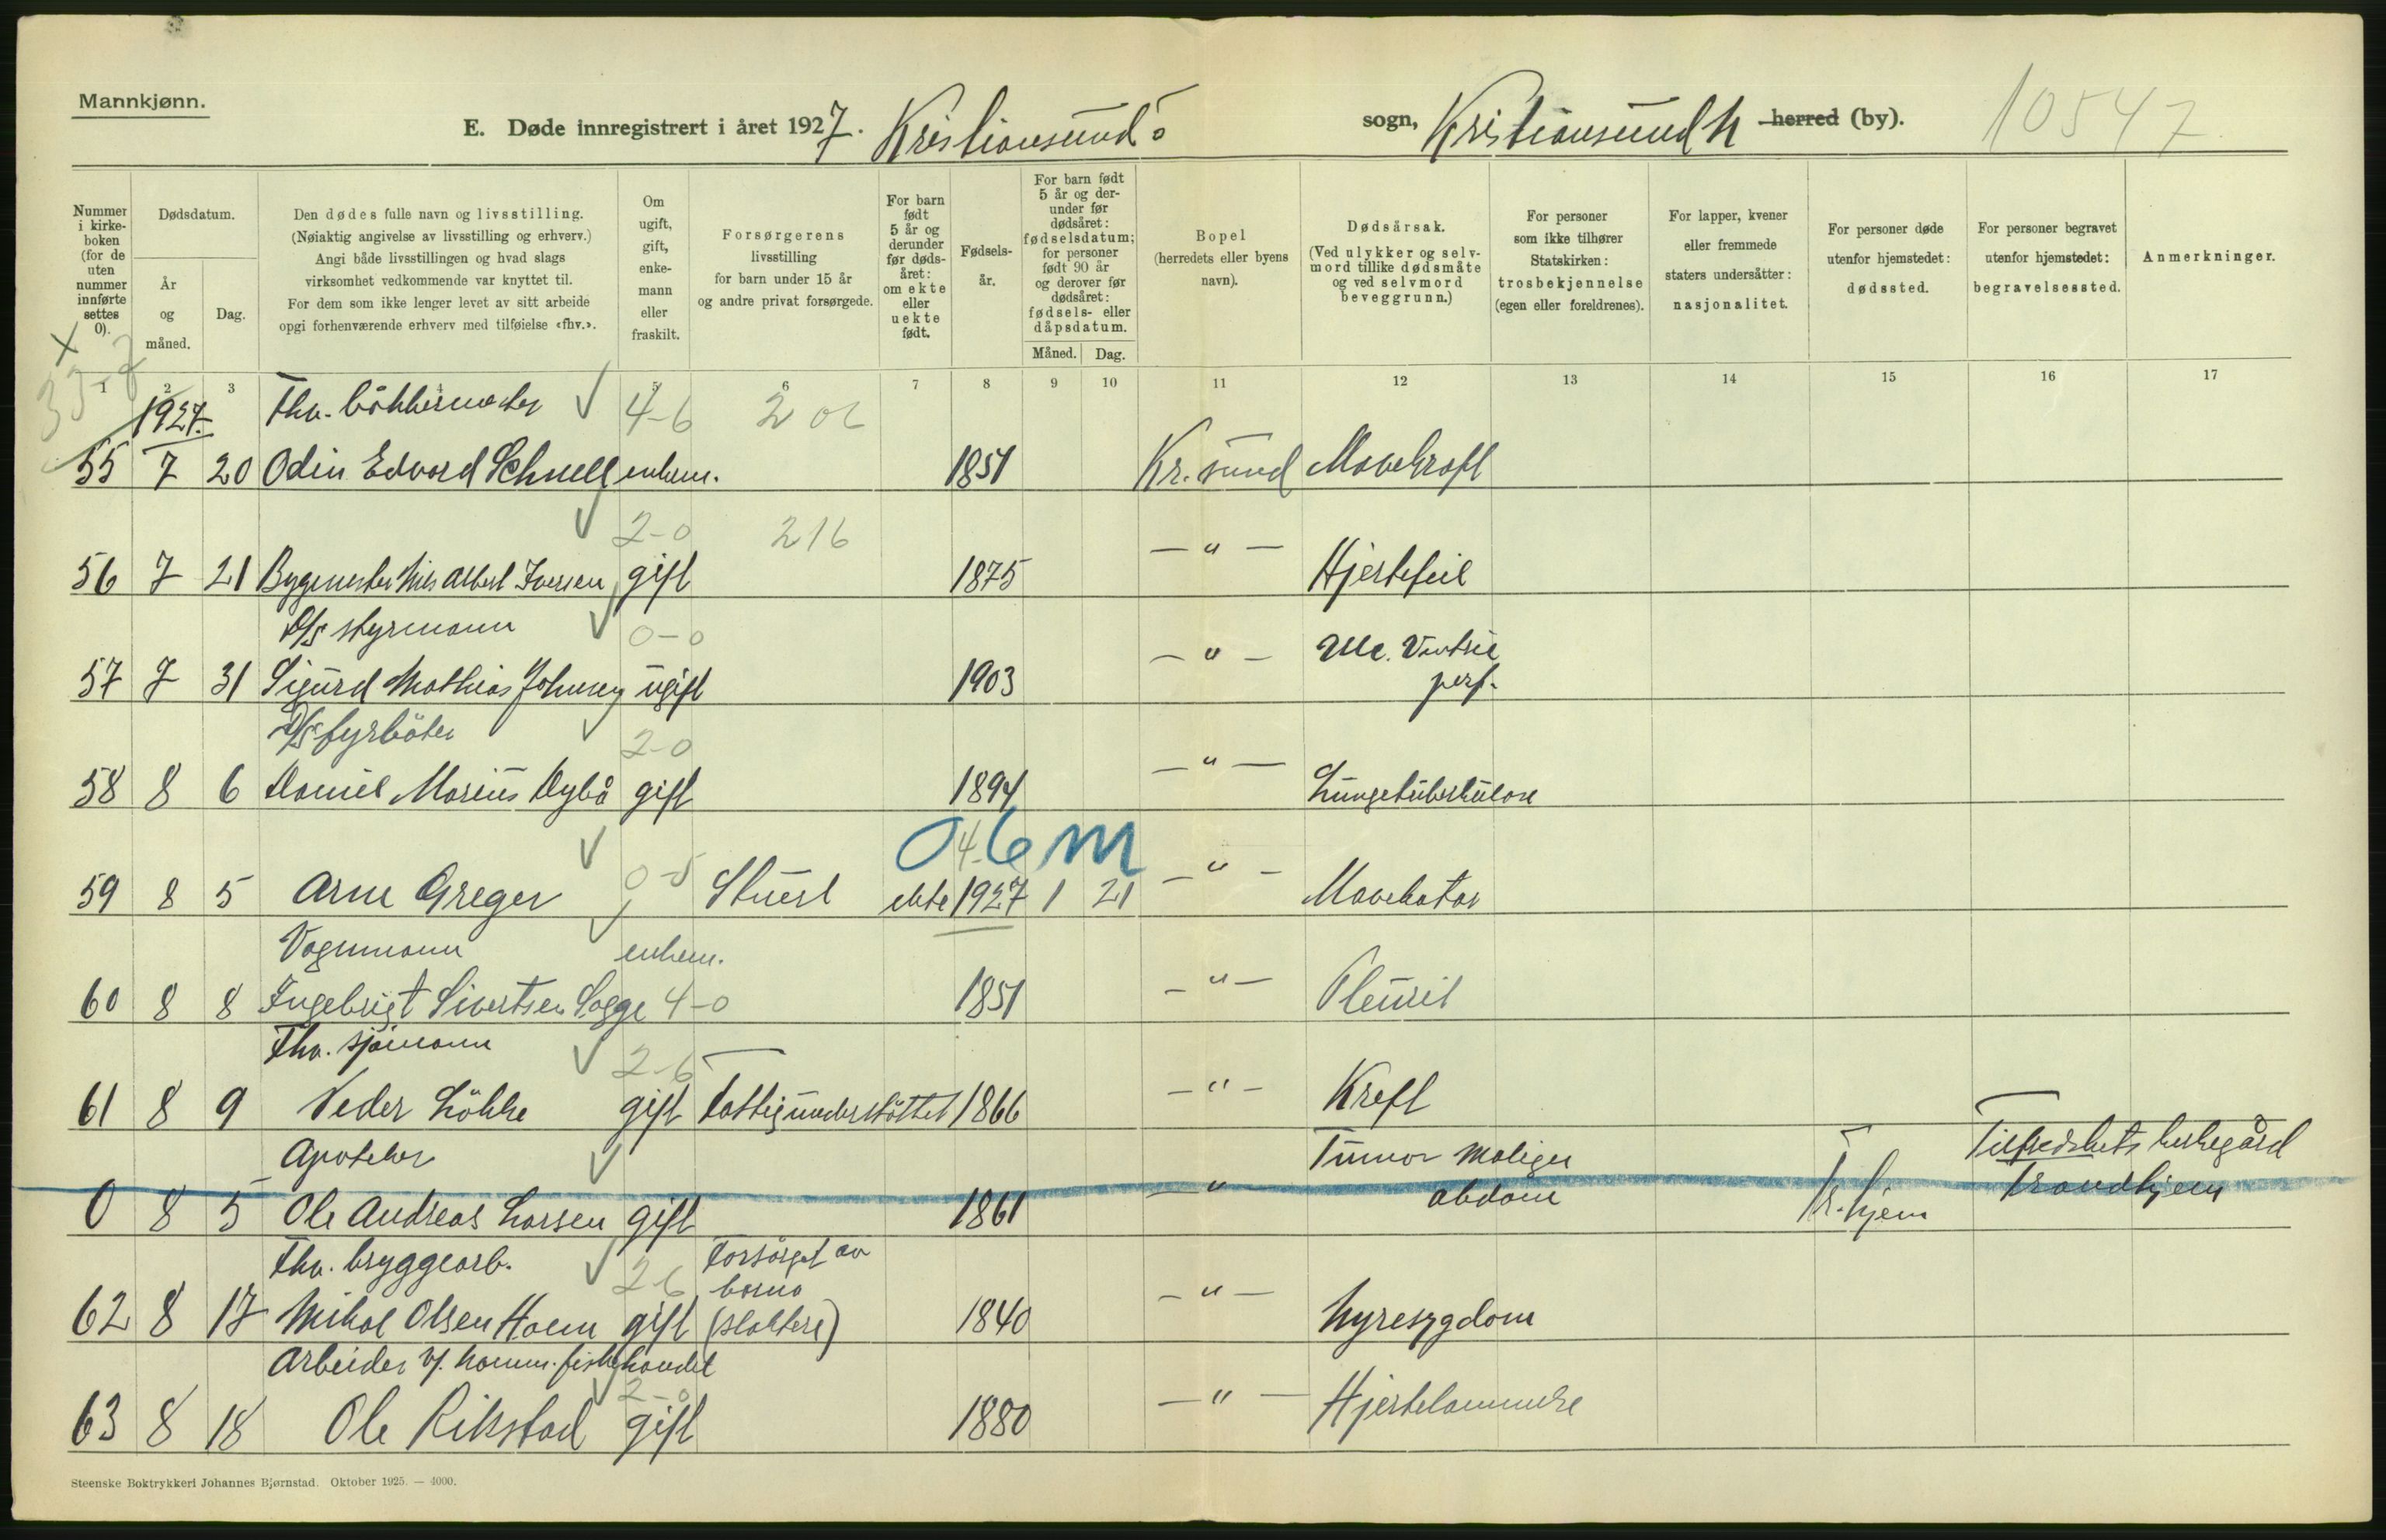 Mannkjønn.
E. Døde innregistrert i året 1927. Kristiansunds sogn, Kristiansund N herred (by). 10547
Nummer i kirkeboken (for de uten nummer innførte settes 0).
Dødsdatum.
År og måned.
Dag.
Den dødes fulle navn og livsstilling.
(Nøiaktig angivelse av livsstilling og erhverv.)
Angi både livsstillingen og hvad slags
virksomhet vedkommende var knyttet til.
For dem som ikke lenger levet av sitt arbeide
opgi forhenværende erhverv med tilføielse «fhv.».
Om ugift, gift, enkemann eller fraskilt.
Forsørgerens livsstilling for barn under 15 år og andre privat forsørgede.
For barn født 5 år og derunder før dødsåret: om ekte eller uekte født.
Fødselsår.
For barn født 5 år og derunder før dødsåret: fødselsdatum; for personer født 90 år og derover før dødsåret: fødsels- eller dåpsdatum.
Måned. Dag.
Bopel (herredets eller byens navn).
Dødsårsak.
(Ved ulykker og selvmord tillike dødsmåte og ved selvmord beveggrunn.)
For personer som ikke tilhører Statskirken: trosbekjennelse (egen eller foreldrenes).
For lapper, kvener eller fremmede staters undersåtter: nasjonalitet.
For personer døde utenfor hjemstedet: dødssted.
For personer begravet utenfor hjemstedet: begravelsessted.
Anmerkninger.
1 2 3 4 5 6 7 8 9 10 11 12 13 14 15 16 17
1927. Fhv. bökkermester 4-6 206
55 7 20 Odin Edvard Schnell enkem. 1851 Kr.sund Mavekraft
2-0 216
56 7 21 Bygmester Nils Albert Iversen gift 1875 — " — Hjertefeil
D/S styrmann 0-0
57 7 31 Sigurd Mathias Johnsen ugift 1903 — " — Ulc. Ventric perf.
D/S fyrböter 2-0
58 8 6 Daniel Marius Dybå gift 1894 — " — Lungetuberkulose
0 4-6 m
59 8 5 Arne Greger 0-5 Stuert ekte 1927 1 21 — " — Mavekatar
Vognmann enkem.
60 8 8 Ingebrigt Sivertsen Sogge 4-0 1851 — " — Pleurit
Fhv. sjömann 2-6
61 8 9 Peder Lökke gift Fattigunderstöttet 1866 — " — Kreft
Apoteker Tumor malign Tilfredshets kirkegård
0 8 5 Ole Andreas Larsen gift 1861 — " — abdom Tr.hjem Trondhjem
Fhv. bryggearb. 2-6 Forsörget av barna
62 8 17 Mikal Olsen Hoem gift (slaktere) 1840 — " — Nyresygdom
Arbeider v/. komm. fiskehandel 2-0
63 8 18 Ole Rikstad gift 1880 — " — Hjertelammelse
Steenske Boktrykkeri Johannes Bjørnstad. Oktober 1925. — 4000.